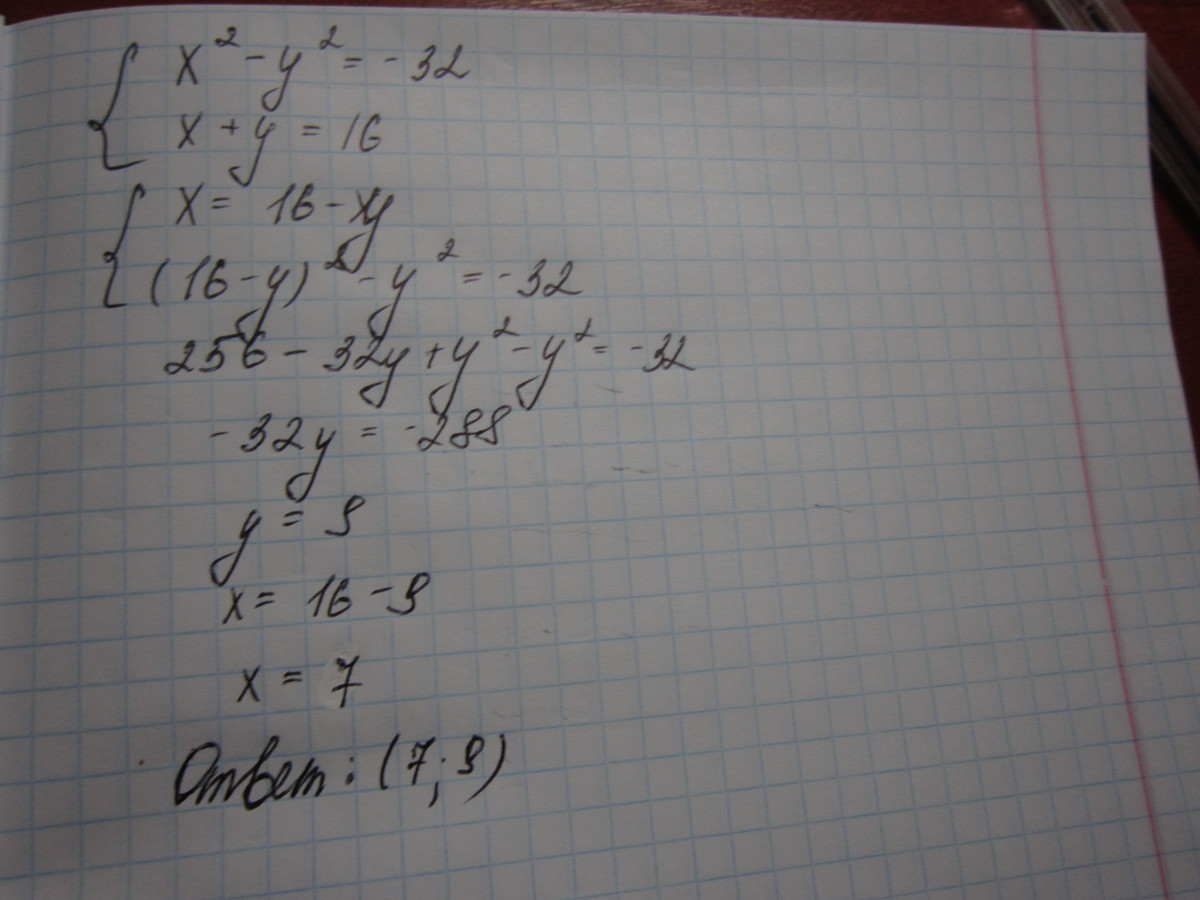 x² - y² = -32
x + y = 16
x = 16 - y
(16 - y)² - y² = -32
256 - 32y + y² - y² = -32
-32y = -288
y = 9
x = 16 - 9
x = 7
Ответ: (7; 9)